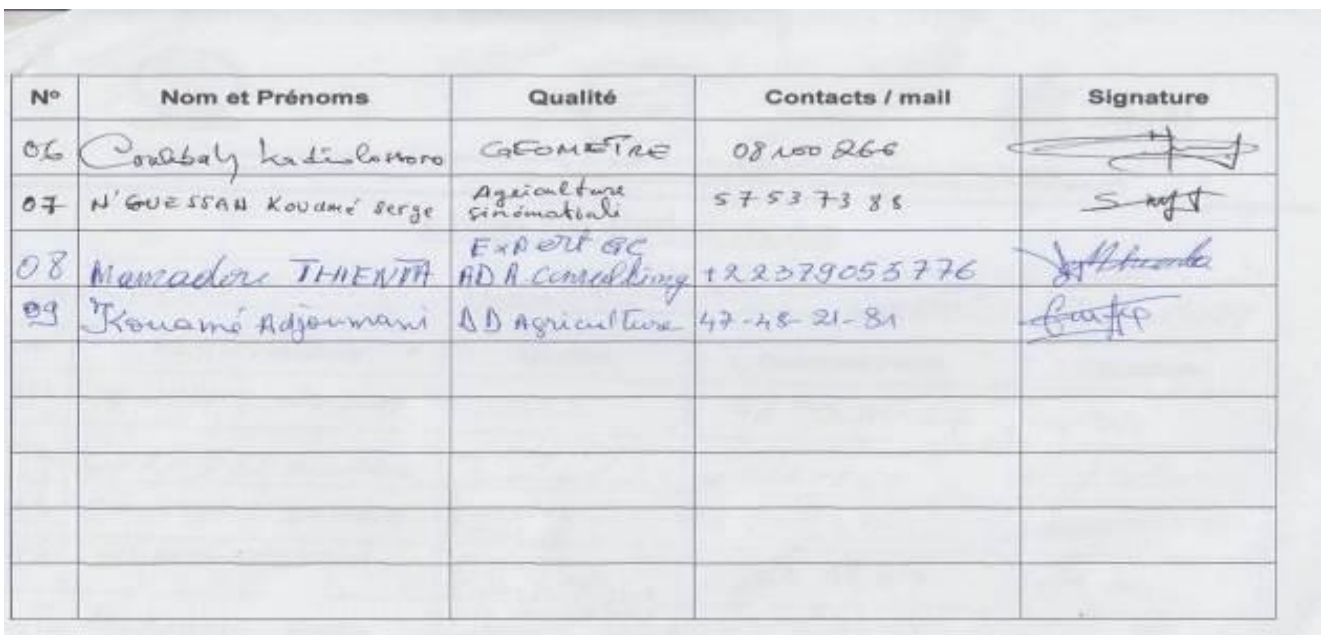 N° Nom et Prénoms Qualité Contacts / mail Signature
06 Coulibaly GEOMETRE 08 100 266
07 N'GUESSAN Kouamé Serge Agriculture sinématiali 57 53 73 88
08 Mamadou THIENTA Expert GC ADA Consulting +22379055776
09 Kouamé Adjoumani DD Agriculture 47-48-21-81